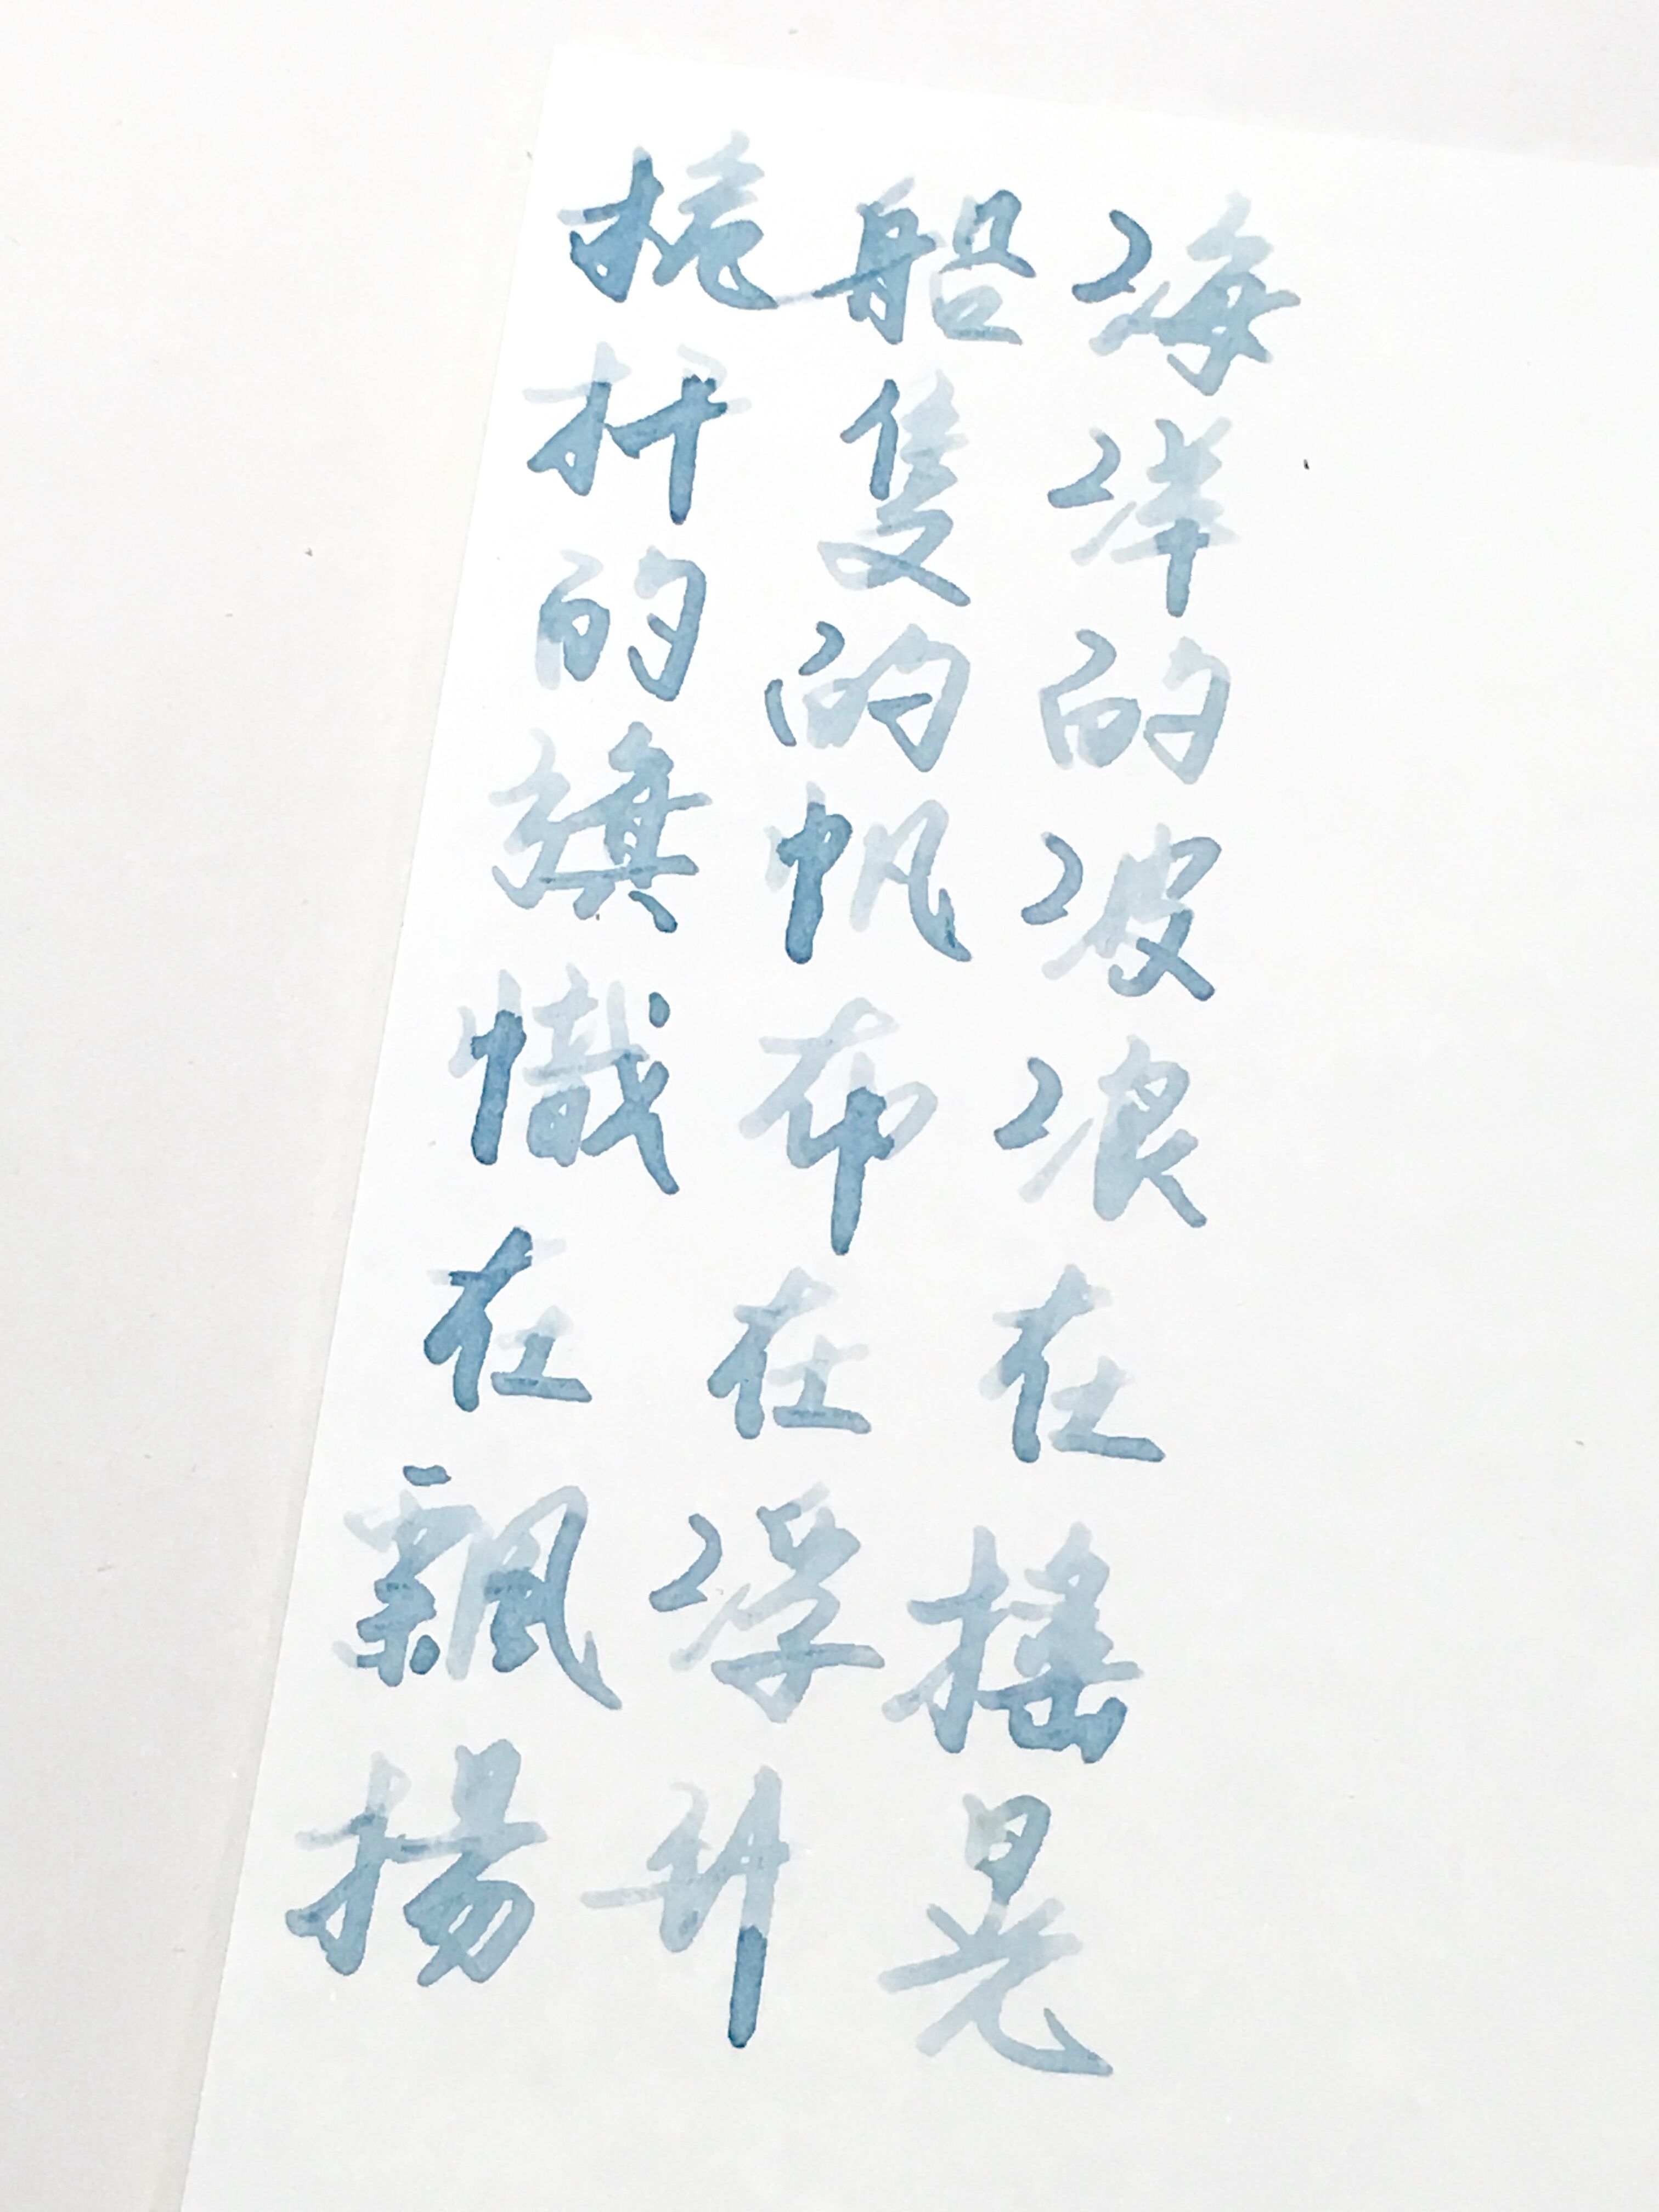 海洋的波浪在搖晃
船隻的帆布在浮升
桅杆的旗幟在飄揚